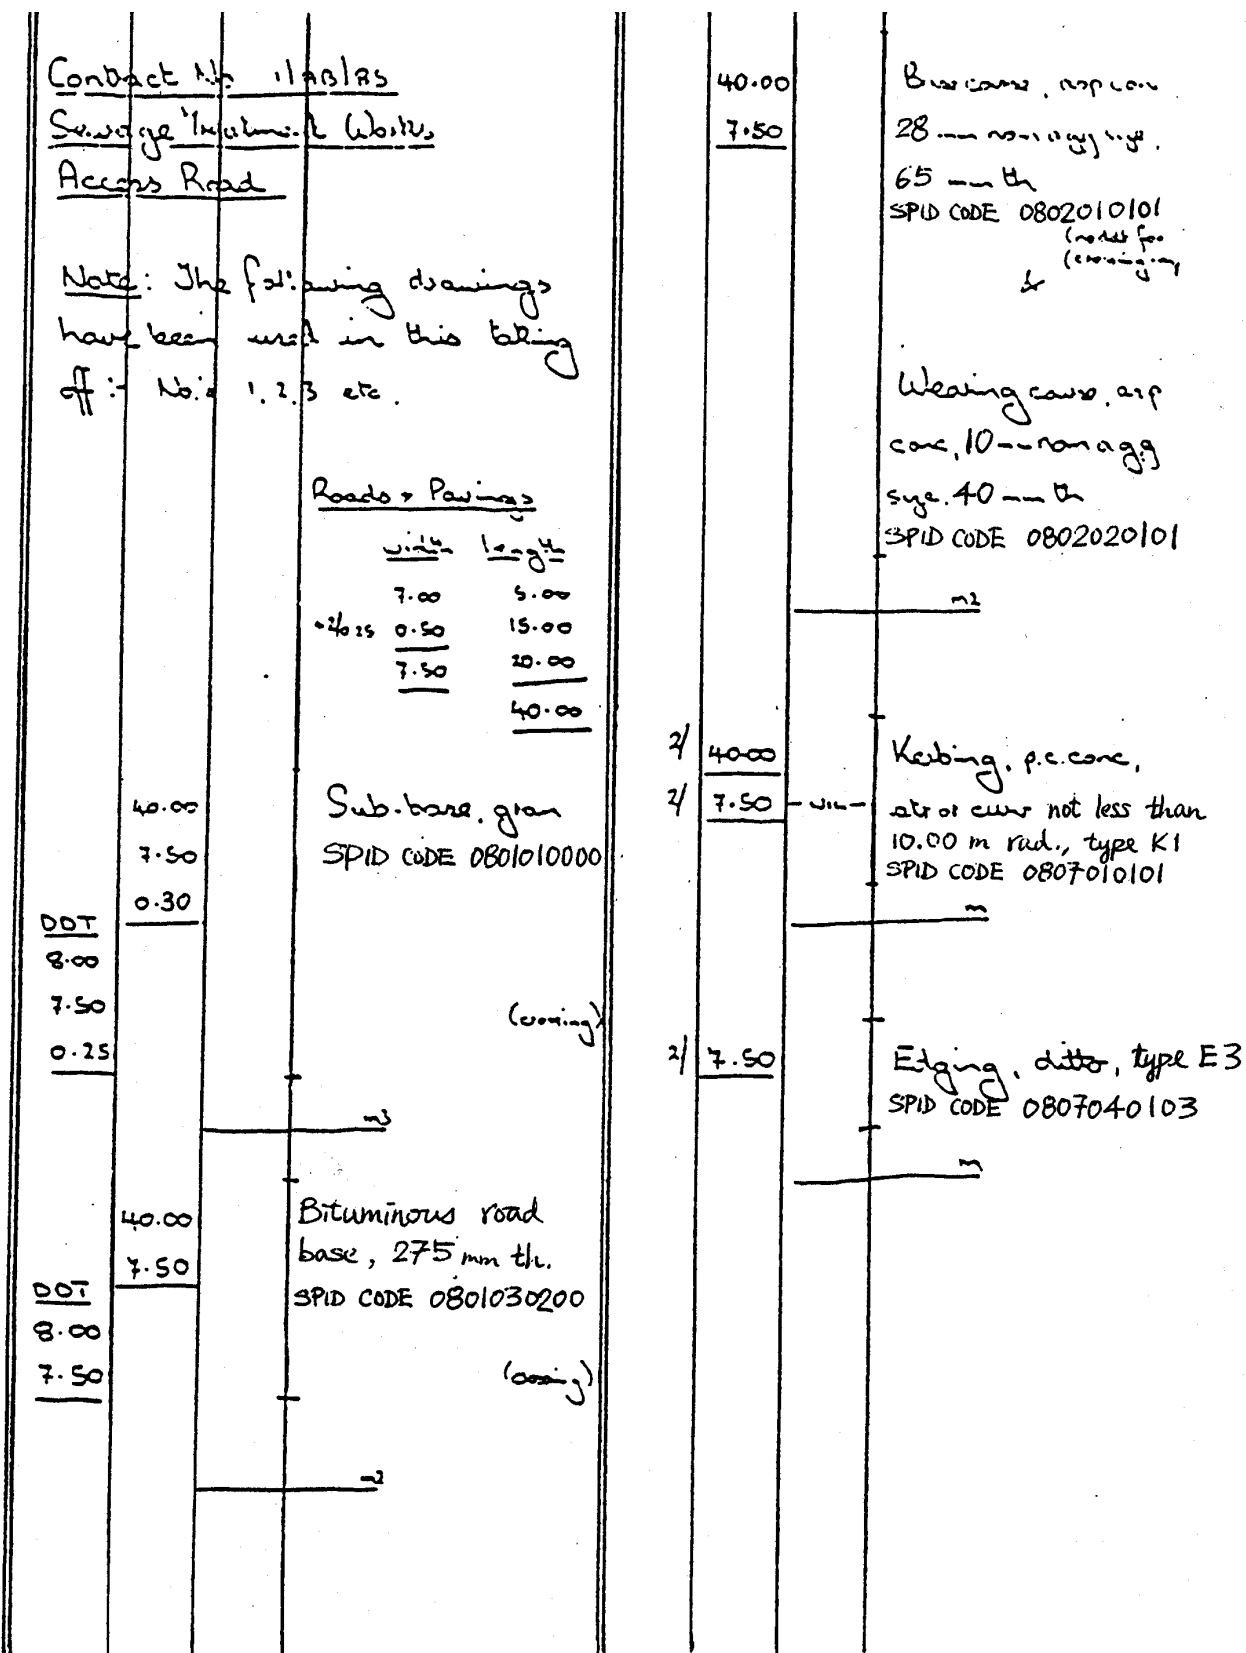 Contract No 1/AB/AS
Sewage Treatment Works
Access Road
Note: The following drawings
have been used in this taking
off :- No.s 1, 2, 3 etc.
Roads + Pavings
width length
7.00 5.00
+2/0.25 0.50 15.00
7.50 20.00
40.00
40.00 Sub-base, gran
7.50 SPID CODE 0801010000
0.30
DDT
8.00
7.50 (crossing)
0.25
m3
40.00 Bituminous road
7.50 base, 275 mm th.
DDT SPID CODE 0801030200
8.00
7.50 (crossing)
m2
40.00 Basecourse, asp conc
7.50 28 mm nom agg size,
65 mm th
SPID CODE 0802010101
(no ddt for
(crossing
&
Wearing course, asp
conc, 10 mm nom agg
size. 40 mm th
SPID CODE 0802020101
m2
2/ 40.00 Kerbing, p.c. conc,
2/ 7.50 - NIL - str or curv not less than
10.00 m rad., type K1
SPID CODE 0807010101
m
2/ 7.50 Edging, ditto, type E3
SPID CODE 0807040103
m